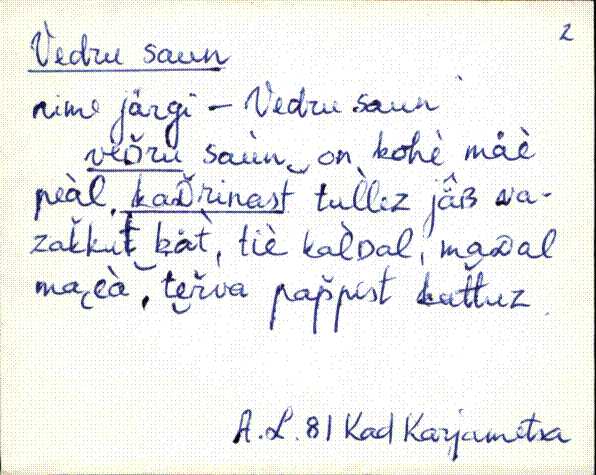 2
Vedru saun
nime järgi – Vedru saun
veDru saùn on kohè måè
peàl, kaDrinast tuĺlez jâB va-
zakkut kåt, tiè kalDal, maDal
ma eà, teřva pařpist kattuz
A.L. 81 Kad Karjametsa